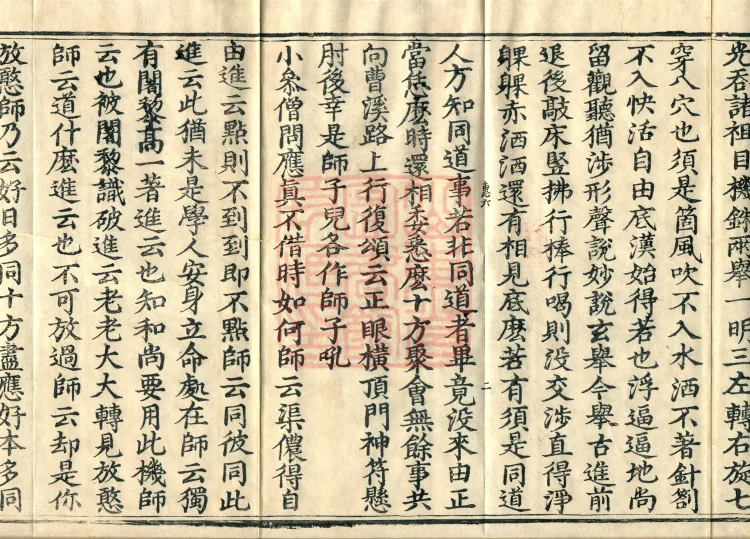 光吞諸祖目機銖兩舉一明三左轉右旋七
穿八穴也須是箇風吹不入水洒不著針劄
不入快活自由底漢始得若也浮逼逼地尚
留觀聽猶涉形聲說妙說玄舉今舉古進前
退後敲床竪拂行棒行喝則没交涉直得淨
躶躶赤洒洒還有相見底麽若有須是同道
人方知同道事若非同道者畢竟没來由正
當恁麽時還相委悉麽十方聚會無餘事共
向曹溪路上行復頌云正眼橫頂門神符懸
肘後幸是師子兒各作師子吼
小叅僧問應眞不借時如何師云渠儂得自
由進云點則不到到即不點師云同彼同此
進云此猶未是學人安身立命處在師云獨
有闍黎髙一著進云也知和尚要用此機師
云也被闍黎識破進云老老大大轉見放憨
師云道什麽進云也不可放過師云却是你
放憨師乃云好日多同十方盡應好本多同
二